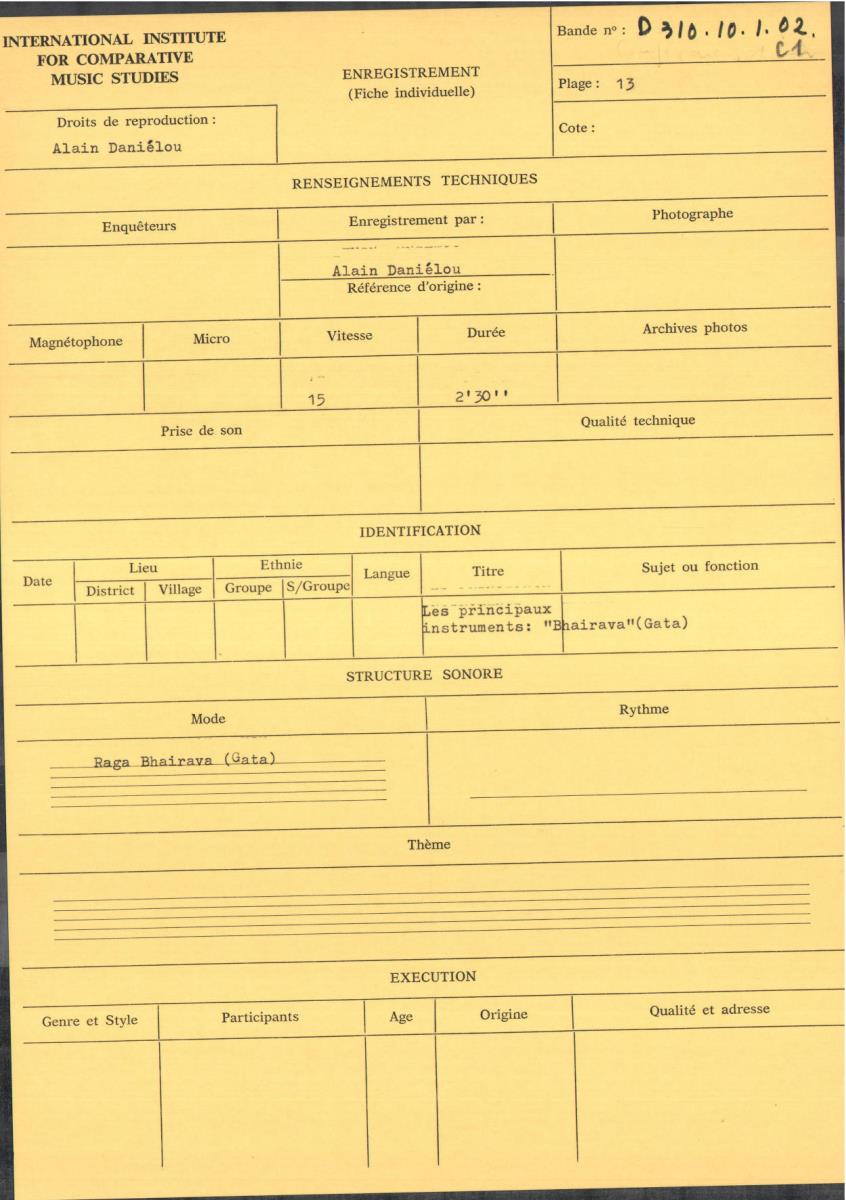 INTERNATIONAL INSTITUTE
FOR COMPARATIVE
MUSIC STUDIES
ENREGISTREMENT
(Fiche individuelle)
Bande nº : D 310.10.1.02.
C1
Plage : 13
Droits de reproduction :
Alain Daniélou
Cote :
RENSEIGNEMENTS TECHNIQUES
Enquêteurs
Enregistrement par :
Photographe
Alain Daniélou
Référence d'origine :
Magnétophone
Micro
Vitesse
Durée
Archives photos
15
2'30''
Prise de son
Qualité technique
IDENTIFICATION
Date
Lieu
Ethnie
Langue
Titre
Sujet ou fonction
District
Village
Groupe
S/Groupe
Les principaux
instruments: "Bhairava"(Gata)
STRUCTURE SONORE
Mode
Rythme
Raga Bhairava (Gata)
Thème
EXECUTION
Genre et Style
Participants
Age
Origine
Qualité et adresse